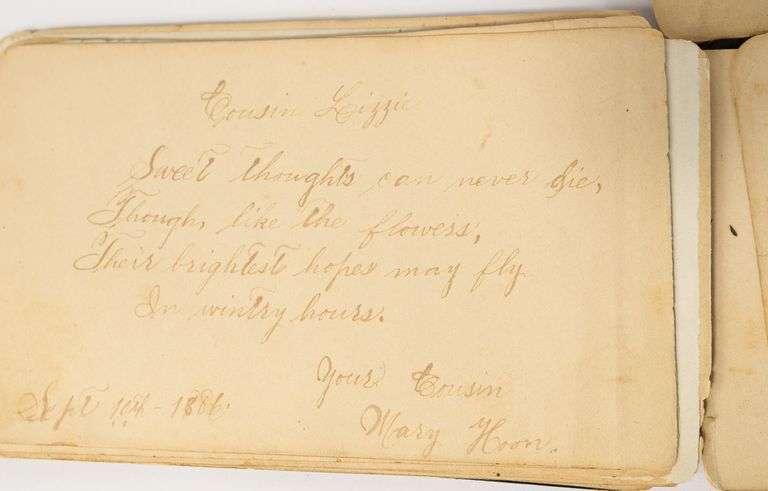 Cousin Lizzie
Sweet thoughts can never die,
Though, like the flowers,
Their brightest hopes may fly
In wintry hours.
Your Cousin
Sept - 1886.
Mary Hoon.